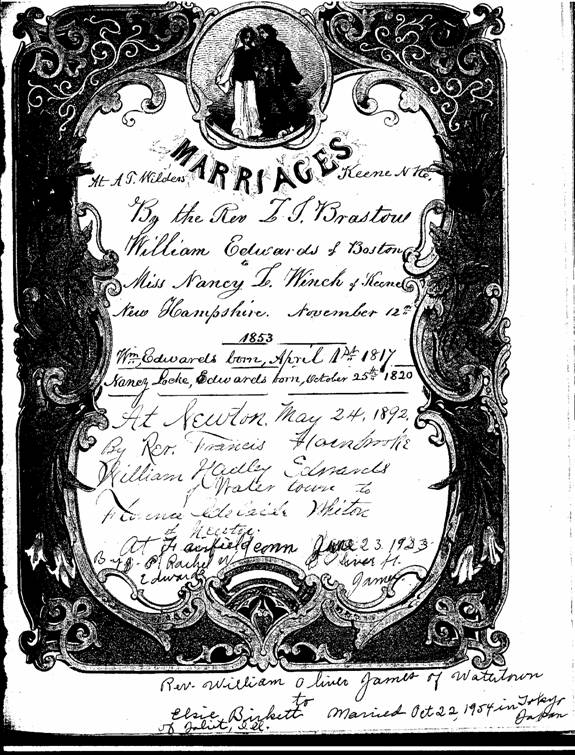 MARRIAGES
At A. T. Wilders Keene N He.
By the Rev Z. S. Brastow
William Edwards of Boston
to
Miss Nancy L. Winch of Keene
New Hampshire. November 12th
1853
Wm, Edwards born, April 1st 1817
Nancy Locke, Edwards born, October 25th 1820
At Newton, May 24, 1892,
By Rev. Francis Hornbrooke
William Hadley Edwards
of Watertown to
Florence Adelaide Whiton
of Newton.
At Fairfield Conn June 23 1923
By Rachel Oliver H.
Edwards James
Rev. William Oliver James of Watertown
to
Elsie Birkett Married Oct 22, 1954 in Tokyo
of Joliet, Ill. Japan